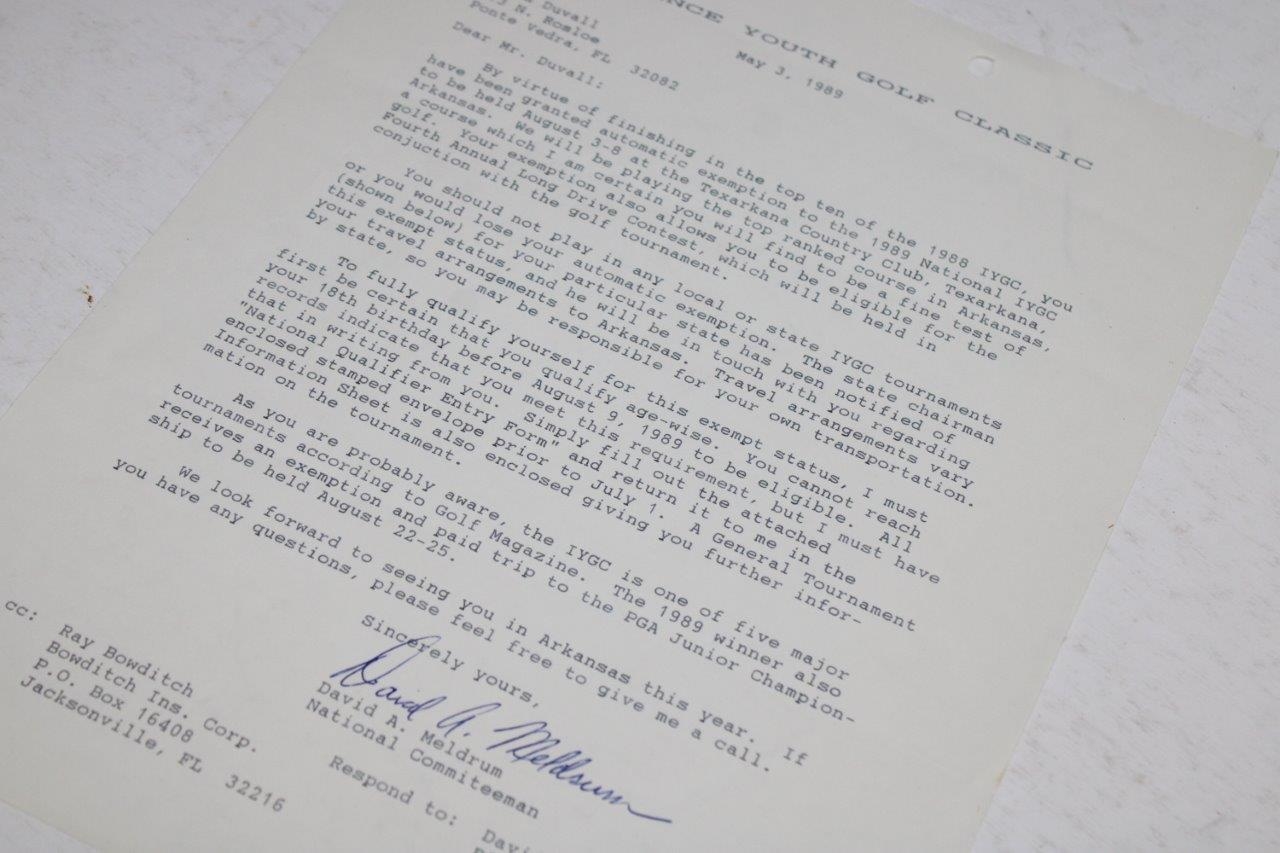 NCE YOUTH GOLF CLASSIC
May 3, 1989
Duvall
N. Roscoe
Ponte Vedra, FL 32082
Dear Mr. Duvall:
By virtue of finishing in the top ten of the 1988 IYGC, you
have been granted automatic exemption to the 1989 National IYGC
to be held August 3-8 at the Texarkana Country Club, Texarkana,
Arkansas. We will be playing the top ranked course in Arkansas,
a course which I am certain you will find to be a fine test of
golf. Your exemption also allows you to be eligible for the
Fourth Annual Long Drive Contest, which will be held in
conjuction with the golf tournament.
You should not play in any local or state IYGC tournaments
or you would lose your automatic exemption. The state chairman
(shown below) for your particular state has been notified of
this exempt status, and he will be in touch with you regarding
your travel arrangements to Arkansas. Travel arrangements vary
by state, so you may be responsible for your own transportation.
To fully qualify yourself for this exempt status, I must
first be certain that you qualify age-wise. You cannot reach
your 18th birthday before August 9, 1989 to be eligible. All
records indicate that you meet this requirement, but I must have
that in writing from you. Simply fill out the attached
"National Qualifier Entry Form" and return it to me in the
enclosed stamped envelope prior to July 1. A General Tournament
Information Sheet is also enclosed giving you further infor-
mation on the tournament.
As you are probably aware, the IYGC is one of five major
tournaments according to Golf Magazine. The 1989 winner also
receives an exemption and paid trip to the PGA Junior Champion-
ship to be held August 22-25.
We look forward to seeing you in Arkansas this year. If
you have any questions, please feel free to give me a call.
Sincerely yours,
David A. Meldrum
David A. Meldrum
National Commiteeman
cc: Ray Bowditch
Bowditch Ins. Corp.
P.O. Box 16408
Jacksonville, FL 32216
Respond to: Davi